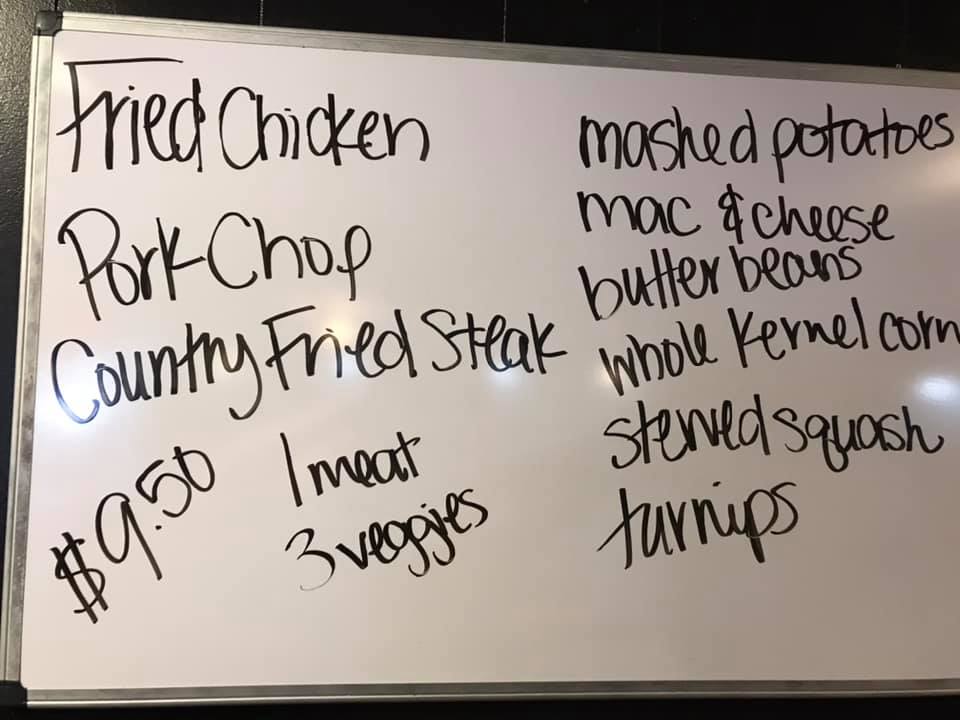 Fried Chicken
Pork Chop
Country Fried Steak
$9.50
1 meat
3 veggies
mashed potatoes
mac & cheese
butter beans
whole kernel corn
stewed squash
turnips